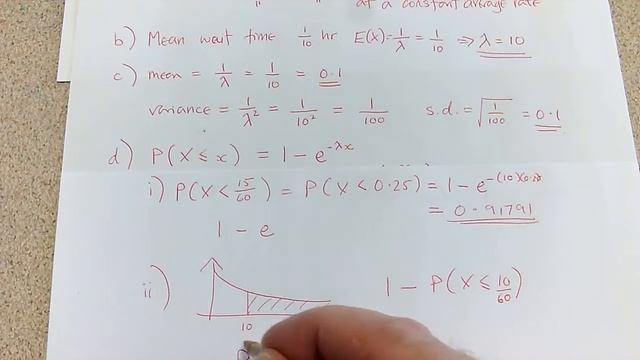 " " at a constant average rate
b) Mean wait time 1/10 hr E(X) = 1/λ = 1/10 ⇒ λ = 10
c) mean = 1/λ = 1/10 = 0.1
variance = 1/λ² = 1/10² = 1/100 s.d. = √(1/100) = 0.1
d) P(X ≤ x) = 1 - e^(-λx)
i) P(X < 15/60) = P(X < 0.25) = 1 - e^(-(10)(0.25)
= 0.91791
1 - e
ii) 1 - P(X ≤ 10/60)
10